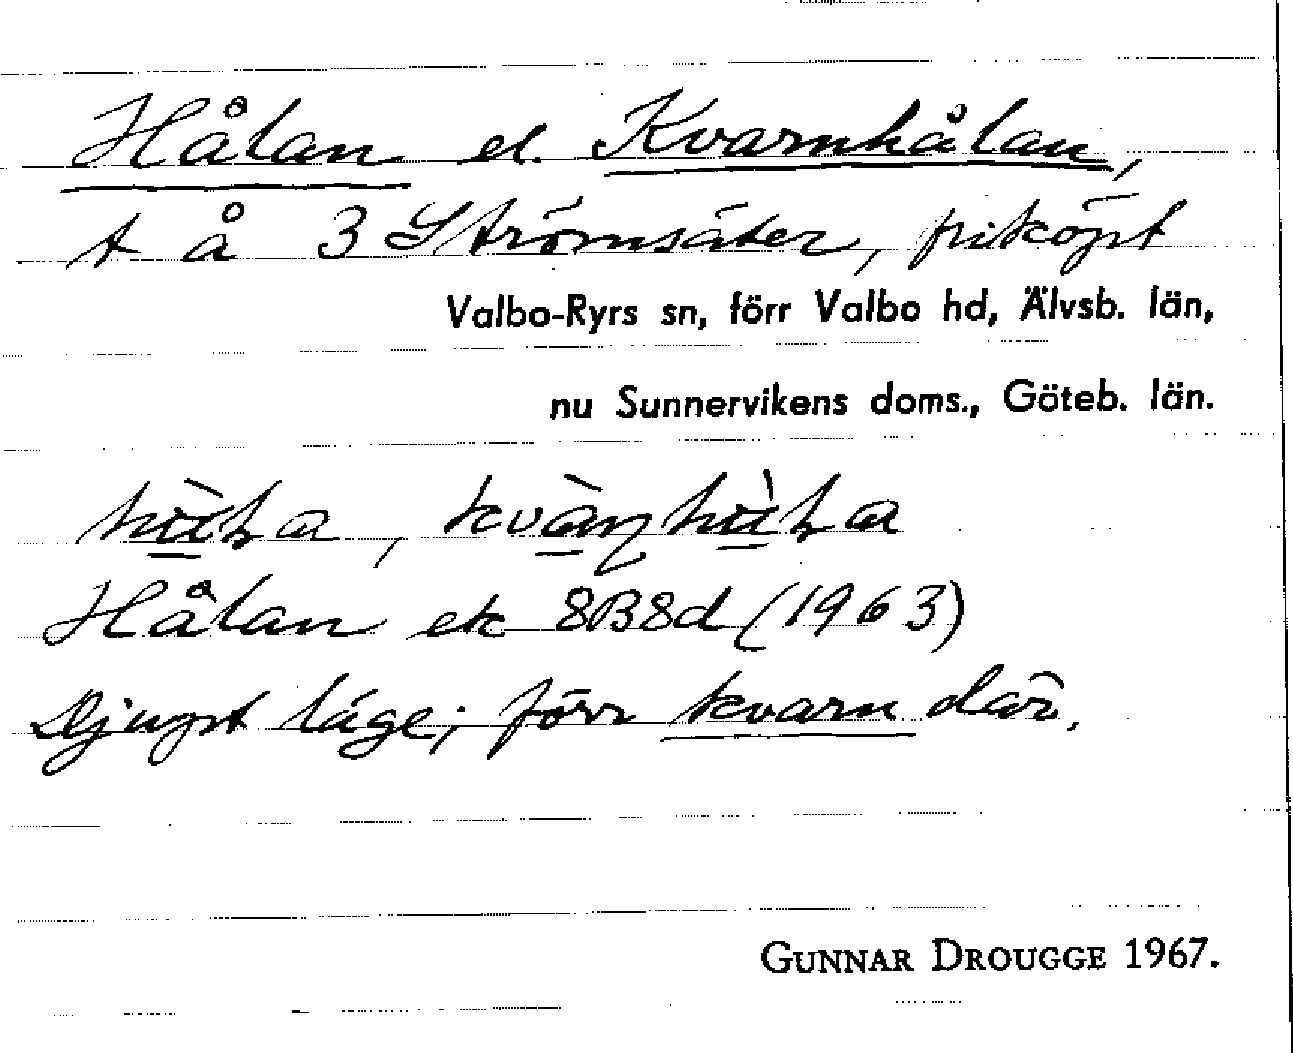 Hålan el. Kvarnhålan,
t å 3 Strömsäter, friköpt
Valbo-Ryrs sn, förr Valbo hd, Älvsb. län,
nu Sunnervikens doms., Göteb. län.
Hålan ek 8B8d (1963)
Djupt läge; förr kvarn där.
GUNNAR DROUGGE 1967.